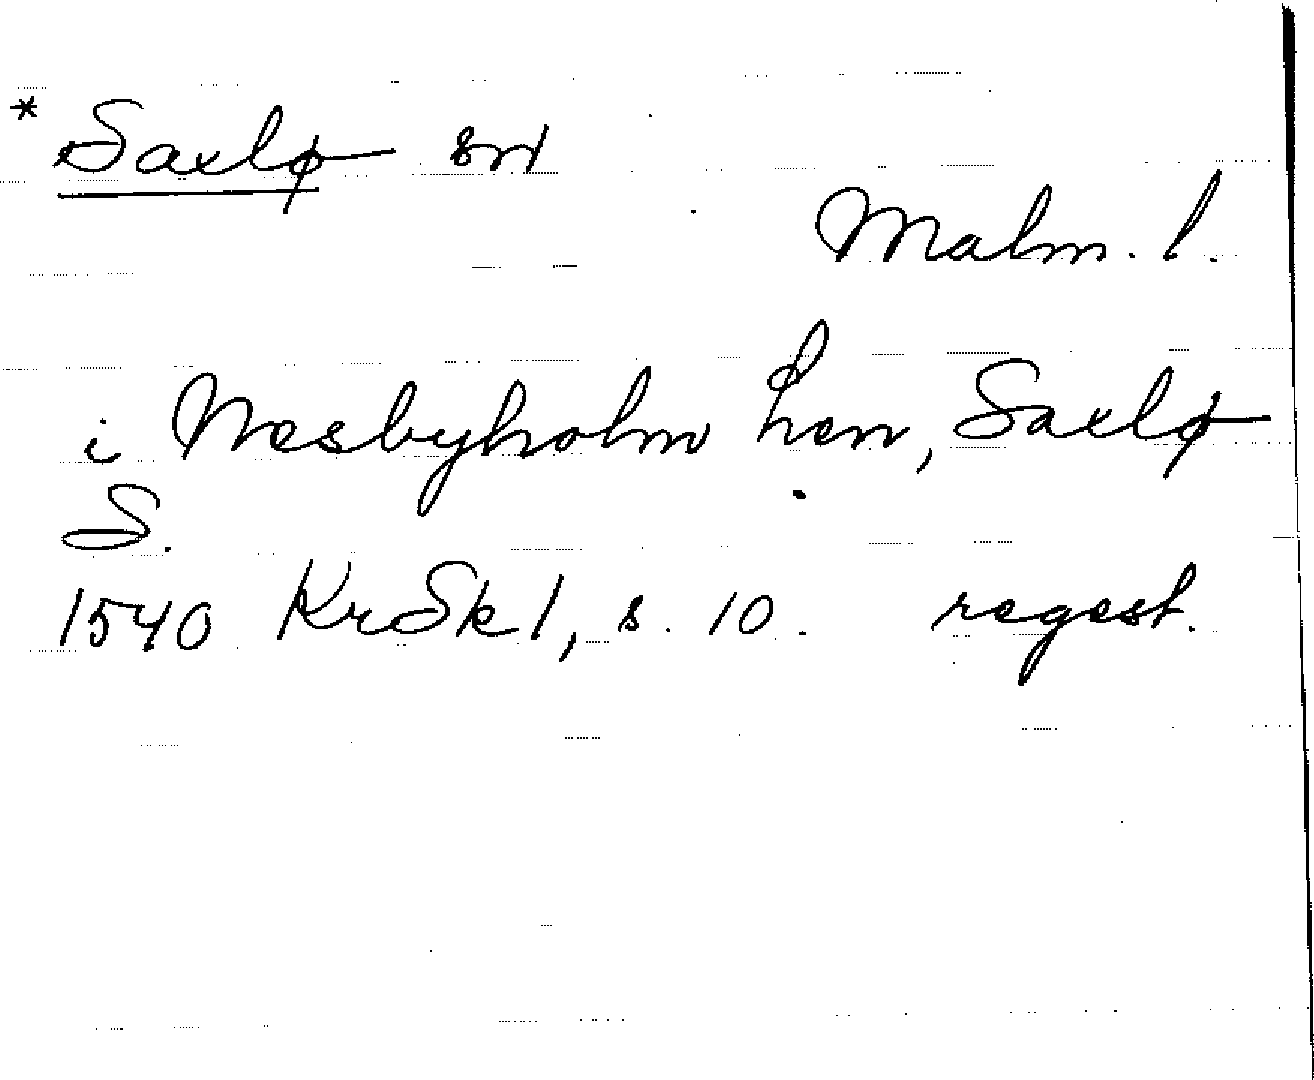 * Saxlø snl
Malm. l.
i Nesbyholm hen, Saxlø
S.
1540 KrSk 1, s. 10. regest.